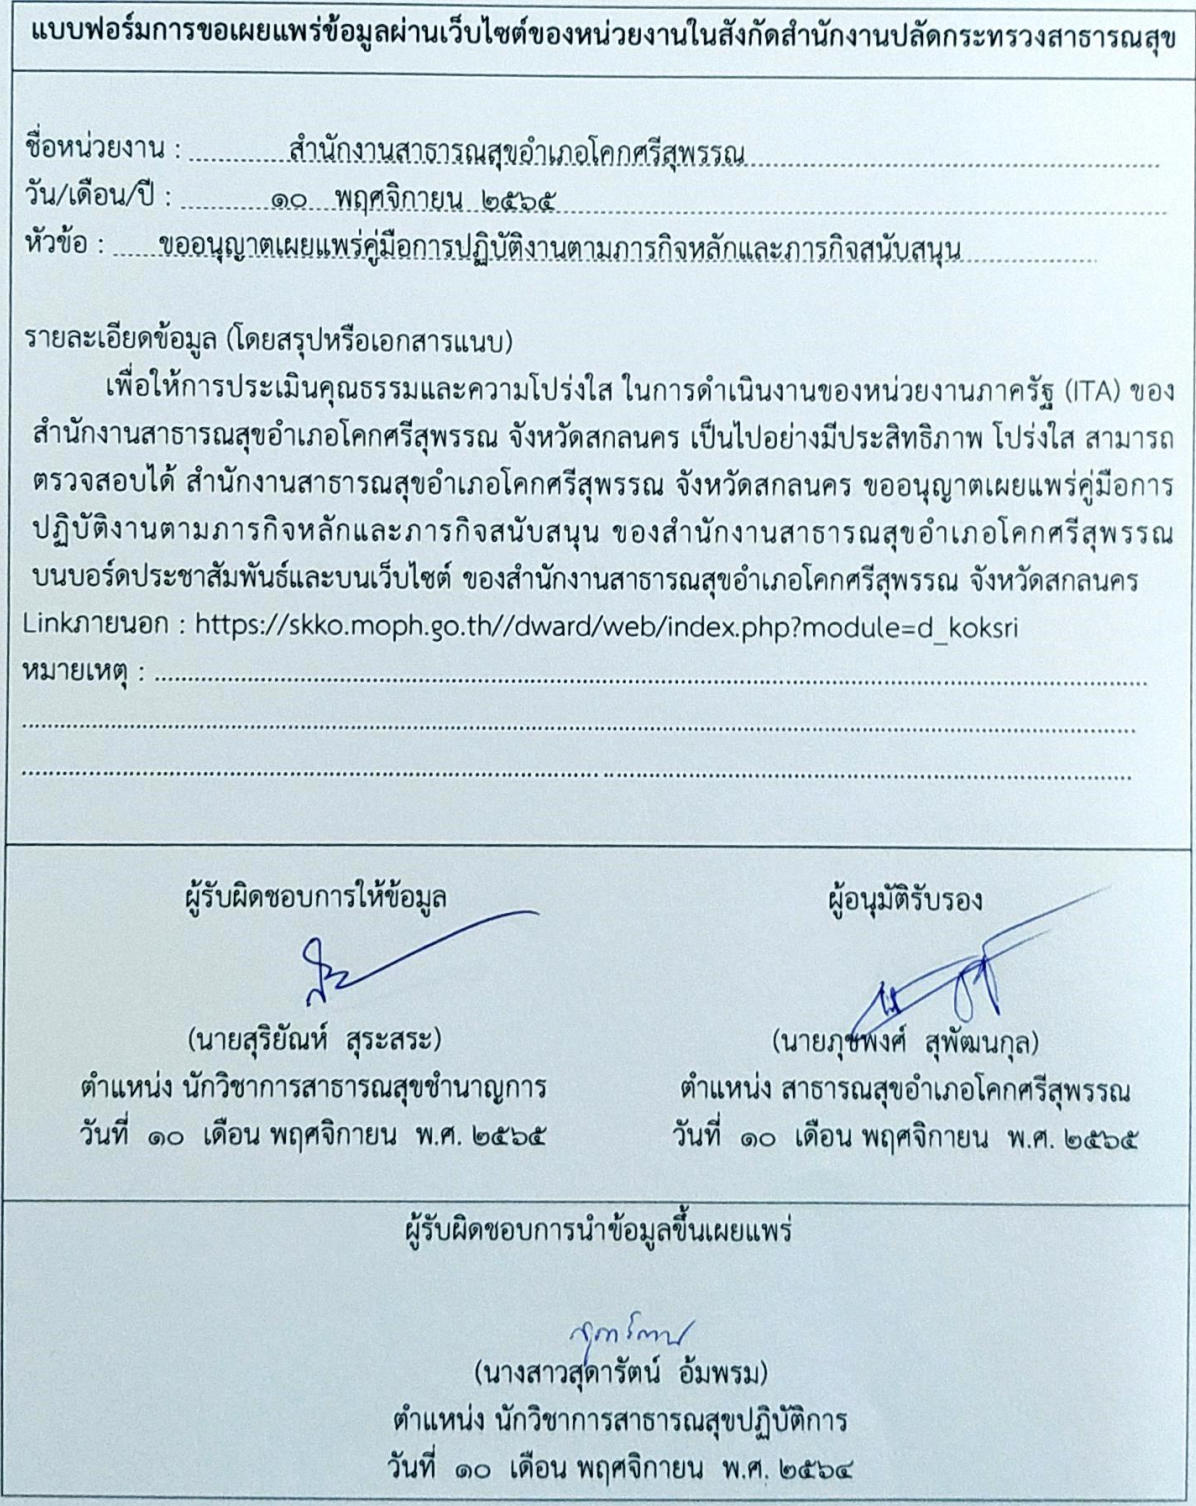 แบบฟอร์มการขอเผยแพร่ข้อมูลผ่านเว็บไซต์ของหน่วยงานในสังกัดสำนักงานปลัดกระทรวงสาธารณสุข
ชื่อหน่วยงาน : สำนักงานสาธารณสุขอำเภอโคกศรีสุพรรณ
วัน/เดือน/ปี : ๑๐ พฤศจิกายน ๒๕๖๕
หัวข้อ : ขออนุญาตเผยแพร่คู่มือการปฏิบัติงานตามภารกิจหลักและภารกิจสนับสนุน
รายละเอียดข้อมูล (โดยสรุปหรือเอกสารแนบ)
เพื่อให้การประเมินคุณธรรมและความโปร่งใส ในการดำเนินงานของหน่วยงานภาครัฐ (ITA) ของ
สำนักงานสาธารณสุขอำเภอโคกศรีสุพรรณ จังหวัดสกลนคร เป็นไปอย่างมีประสิทธิภาพ โปร่งใส สามารถ
ตรวจสอบได้ สำนักงานสาธารณสุขอำเภอโคกศรีสุพรรณ จังหวัดสกลนคร ขออนุญาตเผยแพร่คู่มือการ
ปฏิบัติงานตามภารกิจหลักและภารกิจสนับสนุน ของสำนักงานสาธารณสุขอำเภอโคกศรีสุพรรณ
บนบอร์ดประชาสัมพันธ์และบนเว็บไซต์ ของสำนักงานสาธารณสุขอำเภอโคกศรีสุพรรณ จังหวัดสกลนคร
Linkภายนอก : https://skko.moph.go.th//dward/web/index.php?module=d_koksri
หมายเหตุ :
ผู้รับผิดชอบการให้ข้อมูล
(นายสุริยัณห์ สุระสระ)
ตำแหน่ง นักวิชาการสาธารณสุขชำนาญการ
วันที่ ๑๐ เดือน พฤศจิกายน พ.ศ. ๒๕๖๕
ผู้อนุมัติรับรอง
(นายภุชพงศ์ สุพัฒนกุล)
ตำแหน่ง สาธารณสุขอำเภอโคกศรีสุพรรณ
วันที่ ๑๐ เดือน พฤศจิกายน พ.ศ. ๒๕๖๕
ผู้รับผิดชอบการนำข้อมูลขึ้นเผยแพร่
สุดารัตน์
(นางสาวสุดารัตน์ อ้มพรม)
ตำแหน่ง นักวิชาการสาธารณสุขปฏิบัติการ
วันที่ ๑๐ เดือน พฤศจิกายน พ.ศ. ๒๕๖๔